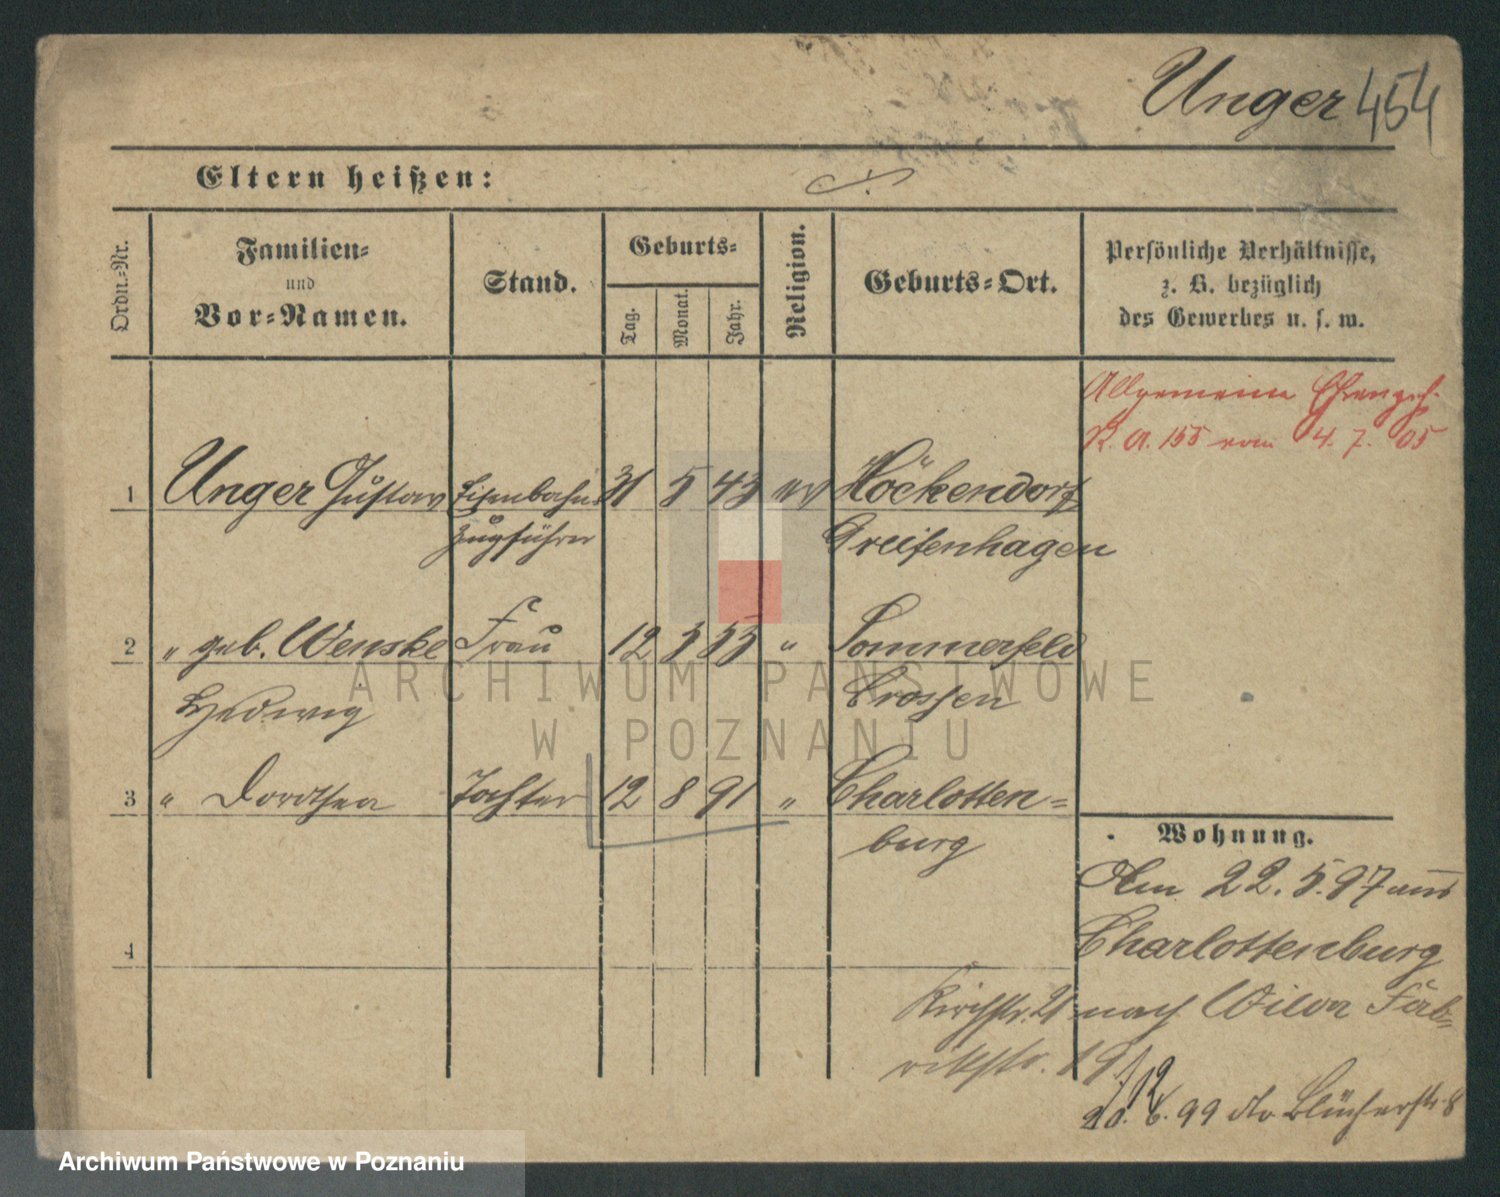 Unger 454
Eltern heißen:
Ordn.-Nr.
Familien-
und
Vor-Namen.
Stand.
Geburts-
Tag.
Monat.
Jahr.
Religion.
Geburts-Ort.
Persönliche Verhältnisse,
z. B. bezüglich
des Gewerbes u. s. w.
Allgemeine Ehrenzeich.
K. A. 155 vom 4. 7. 05
1 Unger Gustav Eisenbahn- 31 5 43 ev Höckendorf
Zugführer Greifenhagen
2 " geb. Wenske Frau 12 3 55 " Sommerfeld
Hedwig Crossen
3 " Dorothea Tochter 12 8 91 " Charlotten-
burg
4
Wohnung.
Am 22. 5. 97 aus
Charlottenburg
Kirchstr. 21 nach Wilda Fab-
rikstr. 19
20. 6. 99 do Blücherstr. 8
ARCHIWUM PAŃSTWOWE
W POZNANIU
Archiwum Państwowe w Poznaniu